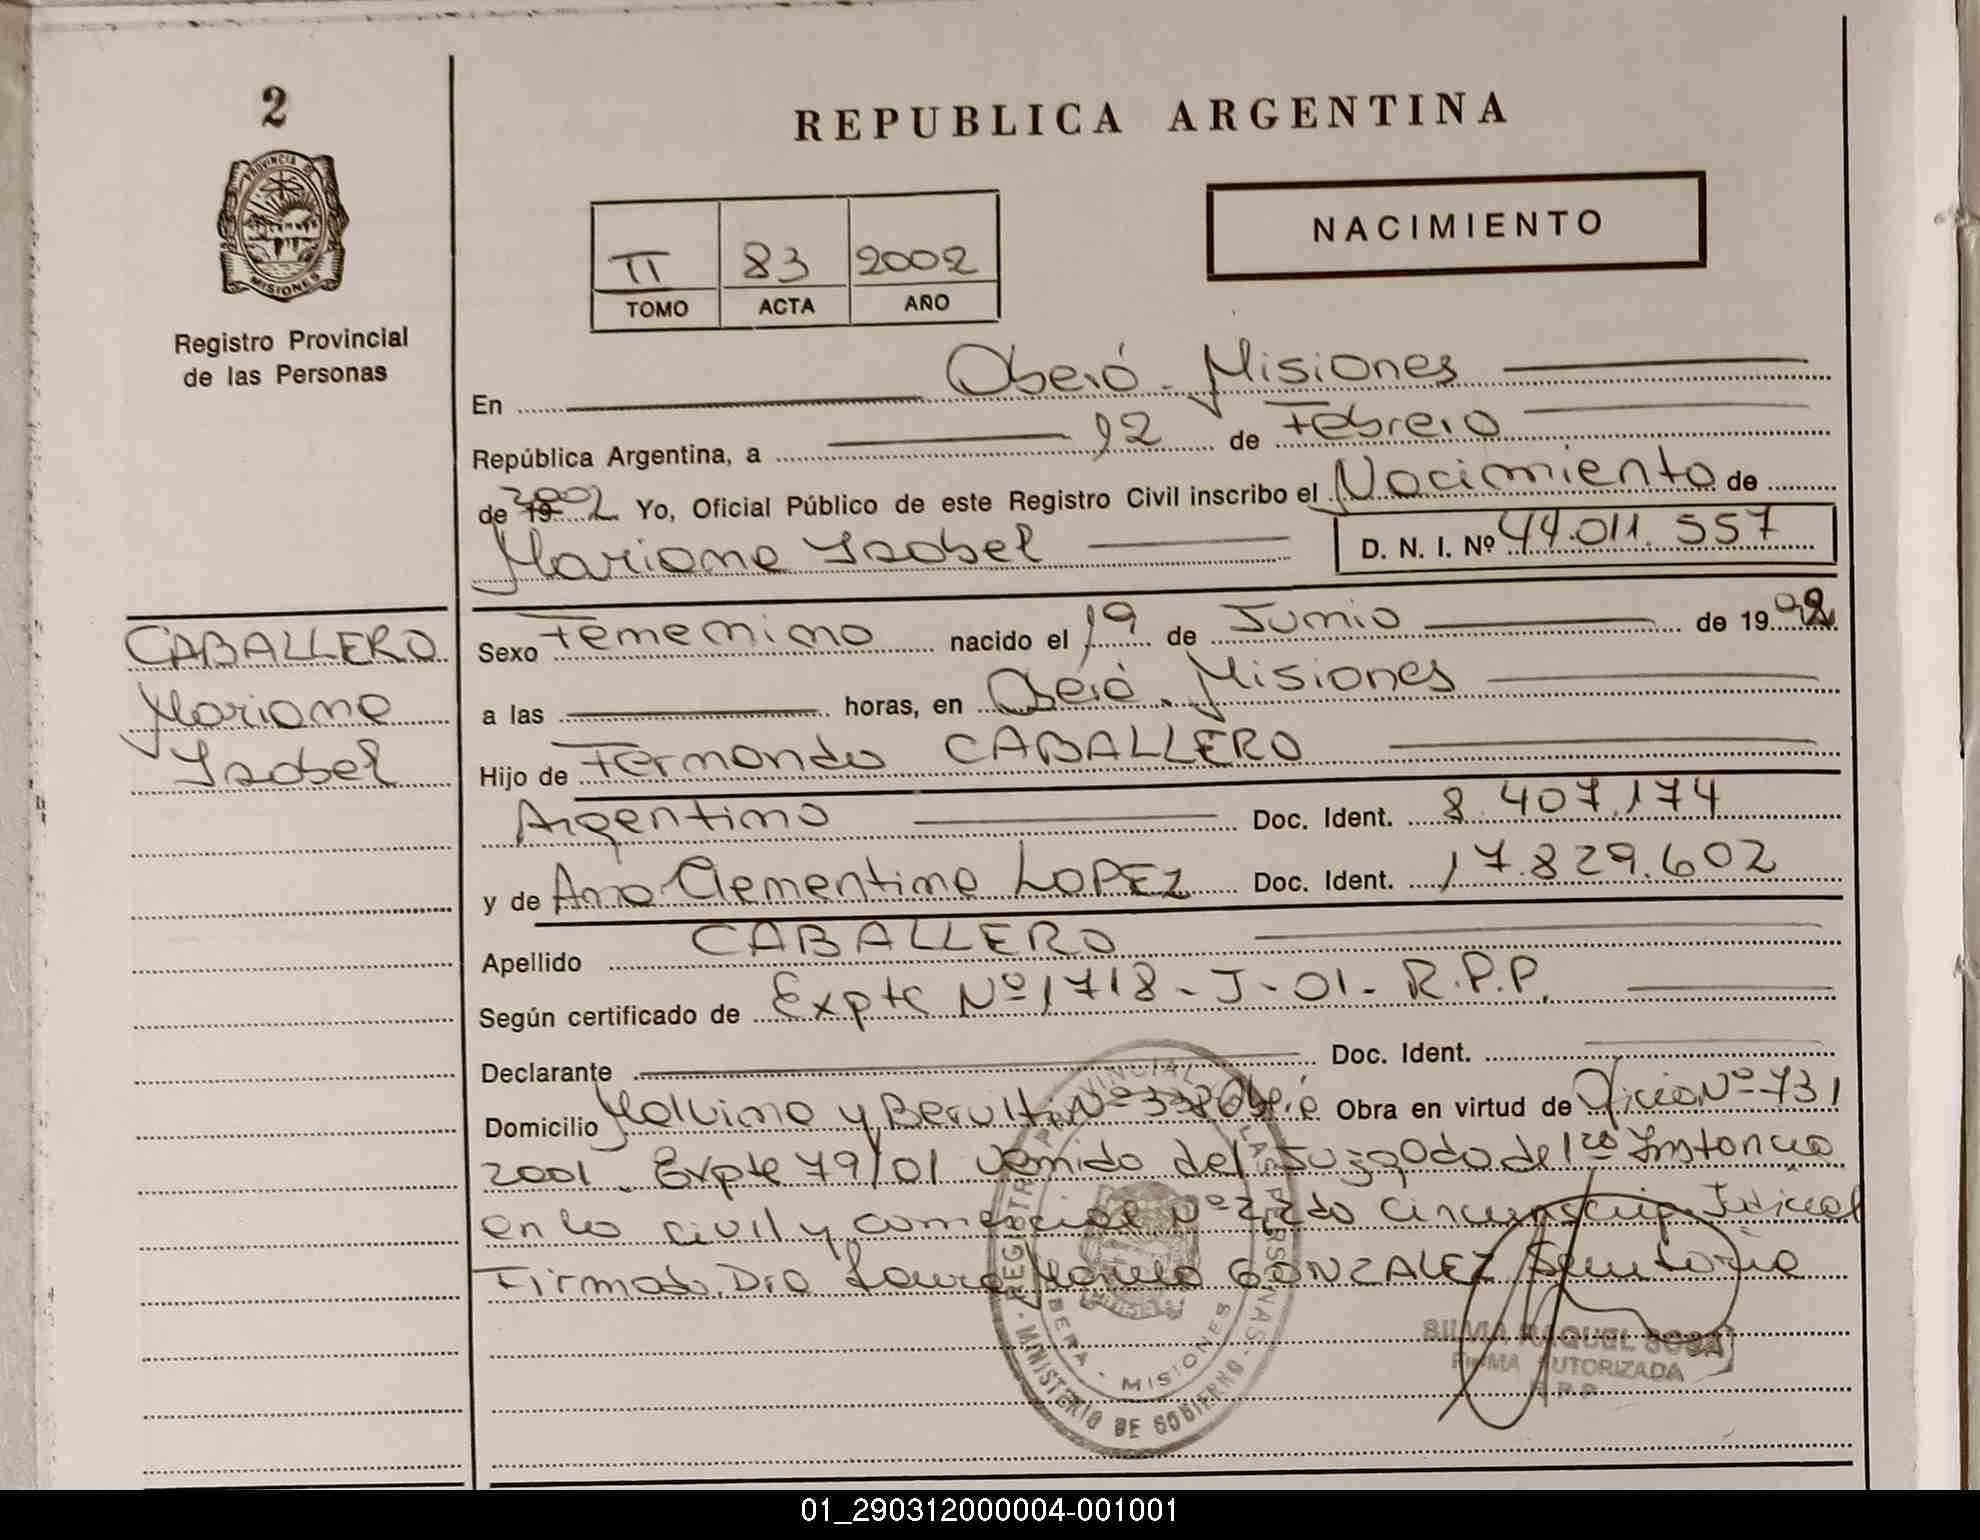 2
PROVINCIA DE
MISIONES
Registro Provincial
de las Personas
REPUBLICA ARGENTINA
NACIMIENTO
II 83 2002
TOMO ACTA AÑO
En Oberá - Misiones
República Argentina, a 12 de Febrero
de 19 2002 Yo, Oficial Público de este Registro Civil inscribo el Nacimiento de
Mariana Isabel D. N. I. Nº 44.011.557
CABALLERO
Mariana
Isabel
Sexo Femenino nacido el 19 de Junio de 19 92
a las horas, en Oberá. Misiones
Hijo de Fernando CABALLERO
Argentino Doc. Ident. 8.407.174
y de Ana Clementina LOPEZ Doc. Ident. 17.829.602
Apellido CABALLERO
Según certificado de Expte Nº 1718 - J - 01 - R.P.P.
Declarante Doc. Ident.
Domicilio y Nº 338 Oberá Obra en virtud de Oficio Nº 731
2001. Expte 79/01 venido del Juzgado de 1ra Instancia
en lo civil y comercial Nº 2, 2do Judicial
Firmado. Dra Laura GONZALEZ Secretaria
REGISTRO PROVINCIAL DE LAS PERSONAS
OBERA - MISIONES
MINISTERIO DE GOBIERNO
SILVIA RAQUEL SOSA
FIRMA AUTORIZADA
R.P.P.
01_290312000004-001001